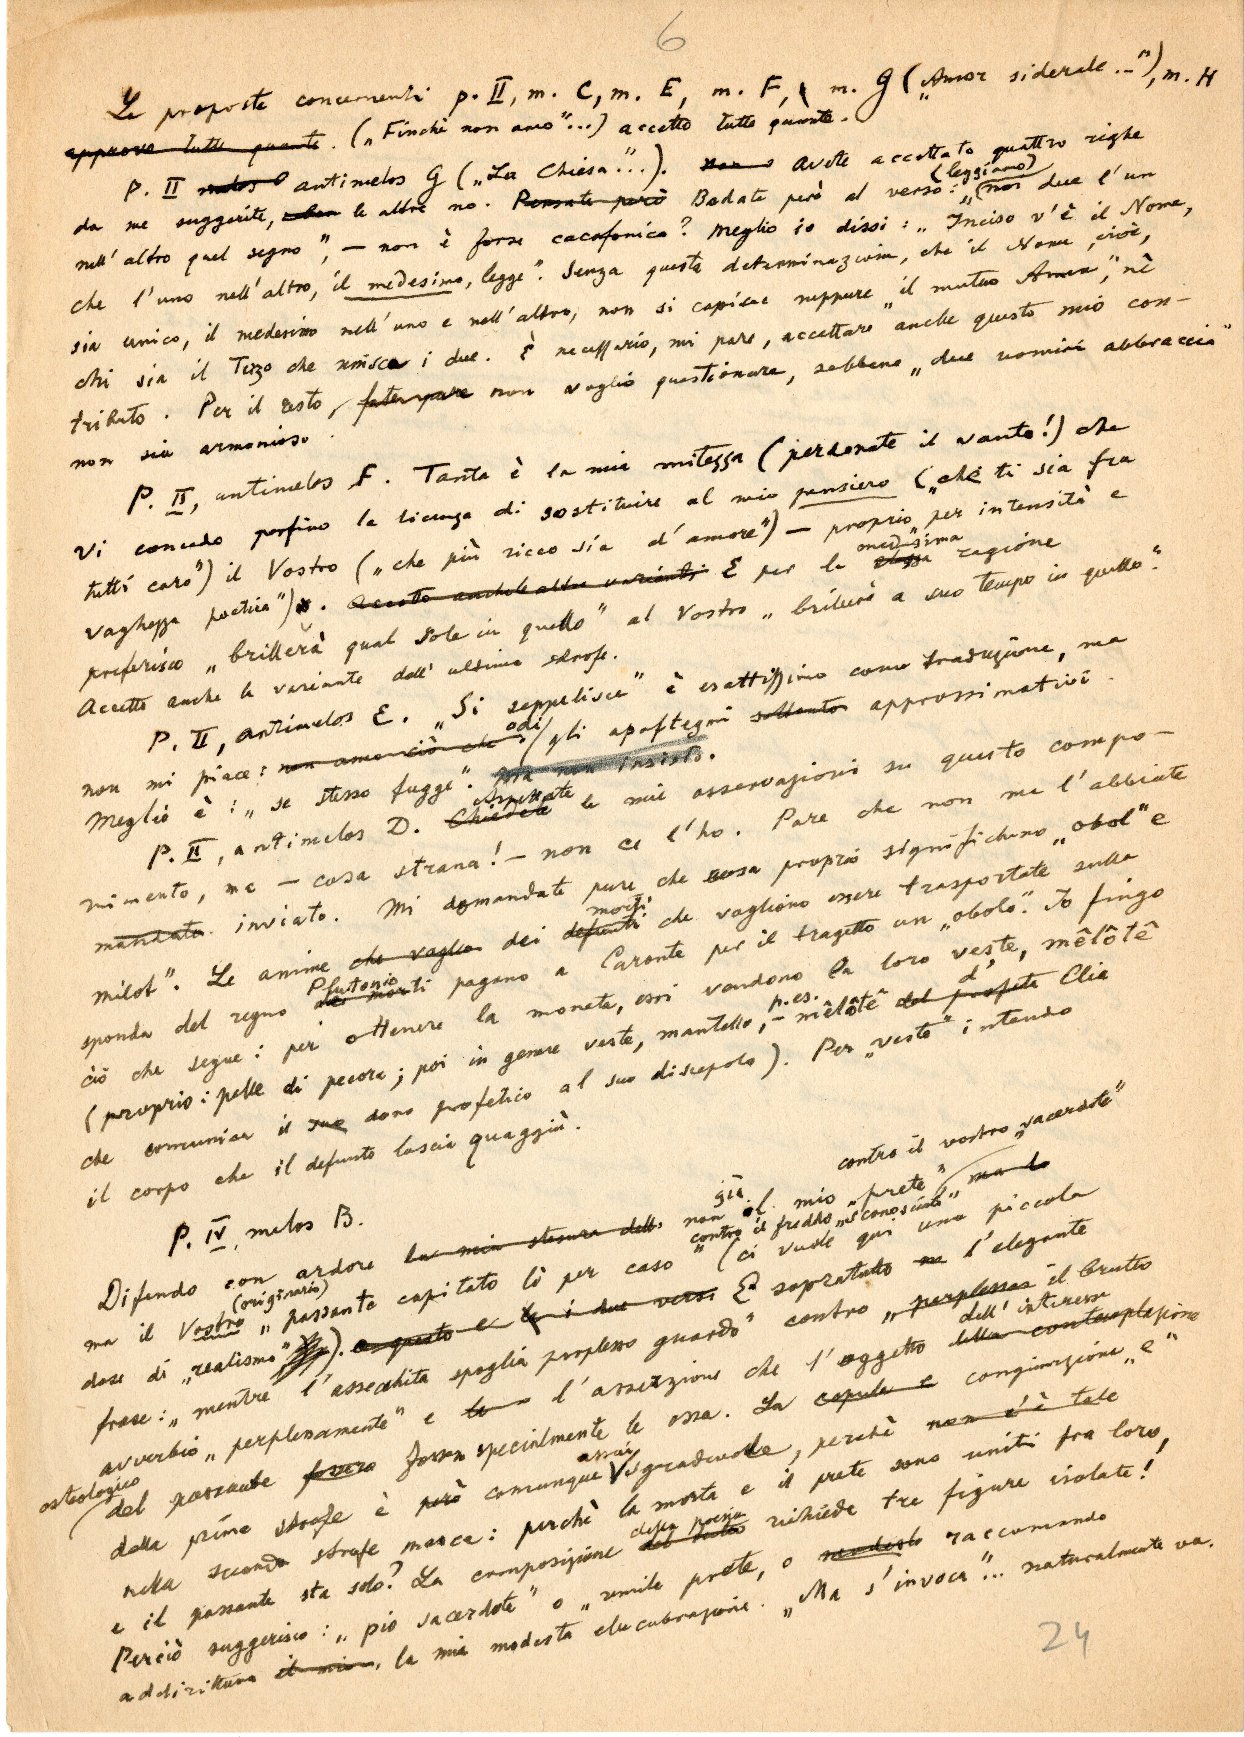 6
Le proposte concernenti p. II, m. C, m. E, m. F, m. G („Amor siderale...“), m. H
approvo tutte quante. („Finchè non amo“...) accetto tutte quante.
P. II melos antimelos G („La Chiesa“...). Avete accettato quattro righe
da me suggerite, le altre no. Pensate però Badate però al verso: „(leggiamo) noi due l'un
nell'altro quel segno“, — non è forse cacofonico? Meglio io dissi: „Inciso v'è il Nome,
che l'uno nell'altro, il medesimo, legge“. Senza questa determinazione, che il Nome, cioè,
sia unico, il medesimo nell'uno e nell'altro, non si capisce neppure „il mutuo Amen“, nè
chi sia il Terzo che unisce i due. È necessario, mi pare, accettare anche questo mio con-
tributo. Per il resto, fate pure non voglio questionare, sebbene „due uomini abbraccia“
non sia armonioso.
P. II, antimelos F. Tanta è la mia mitezza (perdonate il vanto!) che
Vi concedo perfino la licenza di sostituire al mio pensiero („chè ti sia fra
tutti caro“) il Vostro („che più ricco sia d'amore“) — proprio „per intensità e
vaghezza poetica“). Accetto anche le altre varianti E per la stessa medesima ragione
preferisco „brillerà qual Sole in quello“ al Vostro „brillerà a suo tempo in quello“.
Accetto anche le variante dell'ultima strofe.
P. II, antimelos E. „Si seppelisce“ è esattissimo come traduzione, ma
non mi piace: non amo ciò che odi (gli apoftegmi soltanto approssimativi.
Meglio è: „se stesso fugge“. Ma non insisto.
P. II, antimelos D. Chiedete Aspettate le mie osservazioni su questo compo-
nimento, ma — cosa strana! — non ce l'ho. Pare che non me l'abbiate
mandato inviato. Mi domandate pure, che cosa proprio significhino „obol“ e
milot“. Le anime che voglion dei defunti morti che vogliono essere trasportate sulla
sponda del regno dei morti Plutonio pagano a Caronte per il tragetto un „obolo“. Io fingo
ciò che segue: per ottenere la moneta, essi vendono la loro veste, mêlôtê
(proprio: pelle di pecora; poi in genere veste, mantello, p.es. – mêlôtê del profeta d'Elia
che comunica il suo dono profetico al suo discepolo). Per „veste“ intendo
il corpo che il defunto lascia quaggiù.
P. IV, melos B.
contro il vostro „sacerdote“
Difendo con ardore la mia stesura della non già il mio „prete“ ma lo
contro il freddo „sconosciuto“
ma il Vostro (originario) „passante capitato lì per caso“ (ci vuole qui una piccola
dose di „realismo“). E sopratutto l'elegante
frase: „mentre l'assecchita spoglia perplesso guardo“ contro „perplesso il brutto
avverbio „perplessamente“ e l'asserzione che l'oggetto della contemplazione dell'interesse
osteologico del passante fossero fossen specialmente le ossa. La copula e congiunzione „e“
della prima strofe è però comunque assai sgradevole, perchè non c'è tale
nella seconda strofe manca: perchè la morta e il prete sono uniti fra loro,
e il passante sta solo? La composizione della poesia richiede tre figure isolate!
Perciò suggerisco: „pio sacerdote“ o „umile prete“, o raccomando
addirittura il mio, la mia modesta elucubrazione. „Ma s'invoca“... naturalmente va.
24